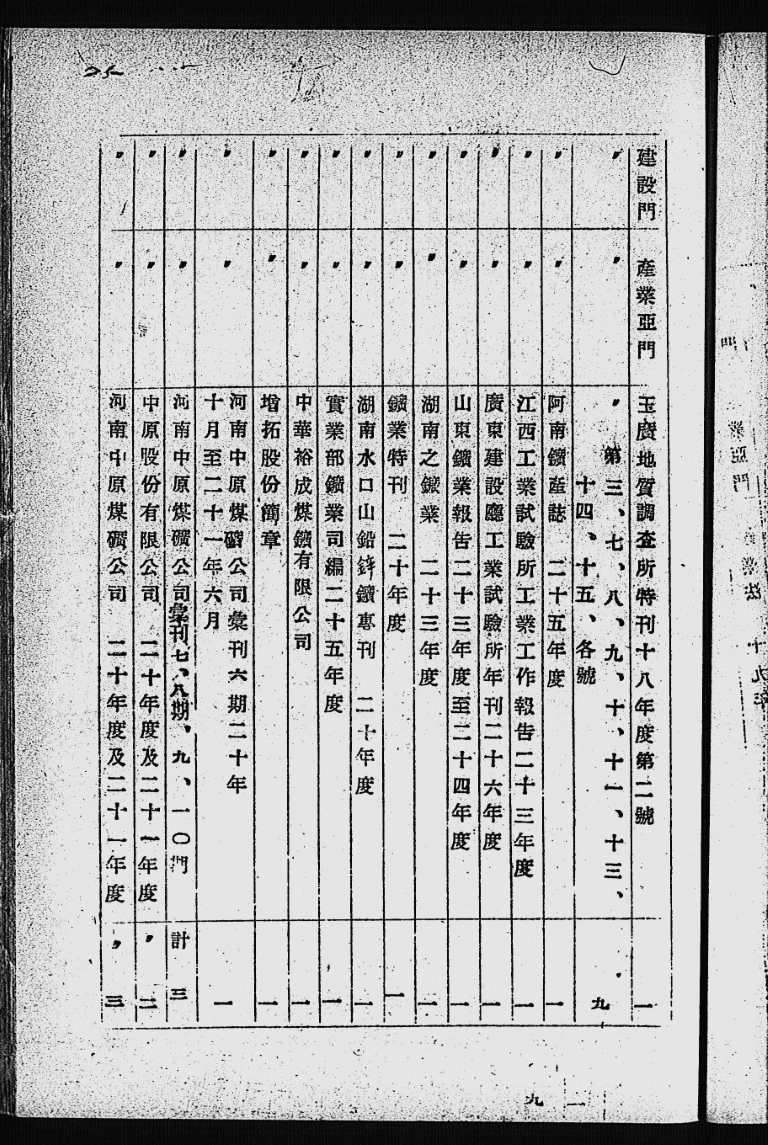 建設門 產業亞門 玉廣地質調查所特刊十八年度第二號 一
〃 〃 〃 第三、七、八、九、十、十一、十三、
十四、十五、各號 九
〃 〃 阿南鑛產誌 二十五年度 一
〃 〃 江西工業試驗所工業工作報告二十三年度 一
〃 〃 廣東建設廳工業試驗所年刊二十六年度 一
〃 〃 山東鑛業報告二十三年度至二十四年度 一
〃 〃 湖南之鑛業 二十三年度 一
〃 〃 鑛業特刊 二十年度 一
〃 〃 湖南水口山鉛鋅鑛專刊 二十年度 一
〃 〃 實業部鑛業司編二十五年度 一
〃 〃 中華裕成煤鑛有限公司 一
〃 〃 增拓股份簡章 一
〃 〃 河南中原煤礦公司彙刊六期二十年
十月至二十一年六月 一
〃 〃 河南中原煤礦公司彙刊七、八期、九、一〇 計 三
〃 〃 中原股份有限公司 二十年度及二十一年度 〃 二
〃 〃 河南中原煤礦公司 二十年度及二十一年度 〃 三
九一
25